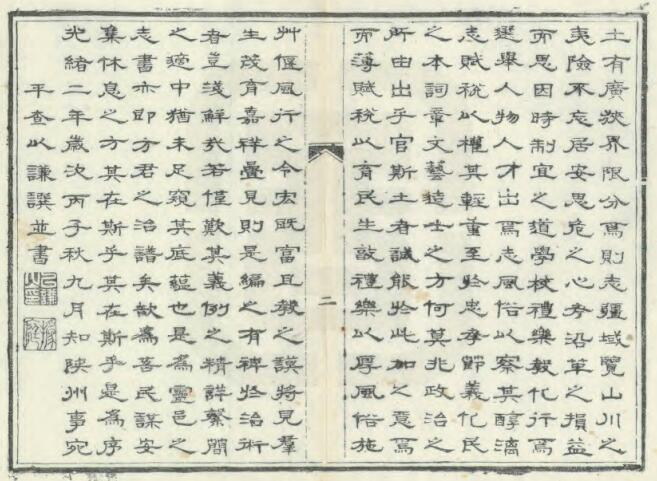 土有廣狹界限分焉則志疆域覽山川之
夷險不忘居安思危之心考沿革之損益
而思因時制宜之道學校禮樂敎化行焉
選舉人物人才出焉志風俗以察其醇漓
志賦稅以權其輕重至於忠孝節義化民
之本詞章文藝造士之方何莫非政治之
所由出乎官斯土者誠能於此加之意焉
而薄賦稅以育民生敦禮樂以厚風俗施
二
艸偃風行之令宏既富且敎之謨將見羣
生茂育嘉祥疊見則是編之有裨於治術
者豈淺鮮哉若僅歎其義例之精詳繁簡
之適中猶未足窺其底蘊也是為靈邑之
志書亦即方君之治譜矣為善民謀安
集休息之方其在斯乎其在斯乎是為序
光緒二年歲次丙子秋九月知陝州事宛
平查以謙譔並書